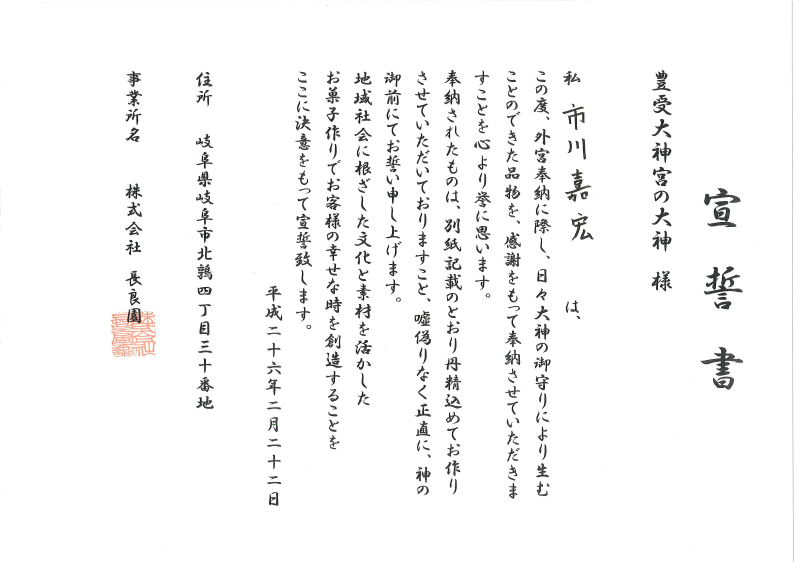 宣誓書
豊受大神宮の大神 様
私 市川嘉宏 は、
この度、外宮奉納に際し、日々大神の御守りにより生む
ことのできた品物を、感謝をもって奉納させていただきま
すことを心より誉に思います。
奉納されたものは、別紙記載のとおり丹精込めてお作り
させていただいておりますこと、嘘偽りなく正直に、神の
御前にてお誓い申し上げます。
地域社会に根ざした文化と素材を活かした
お菓子作りでお客様の幸せな時を創造することを
ここに決意をもって宣誓致します。
平成二十六年二月二十二日
住所 岐阜県岐阜市北鶉四丁目三十番地
事業所名 株式会社 長良園